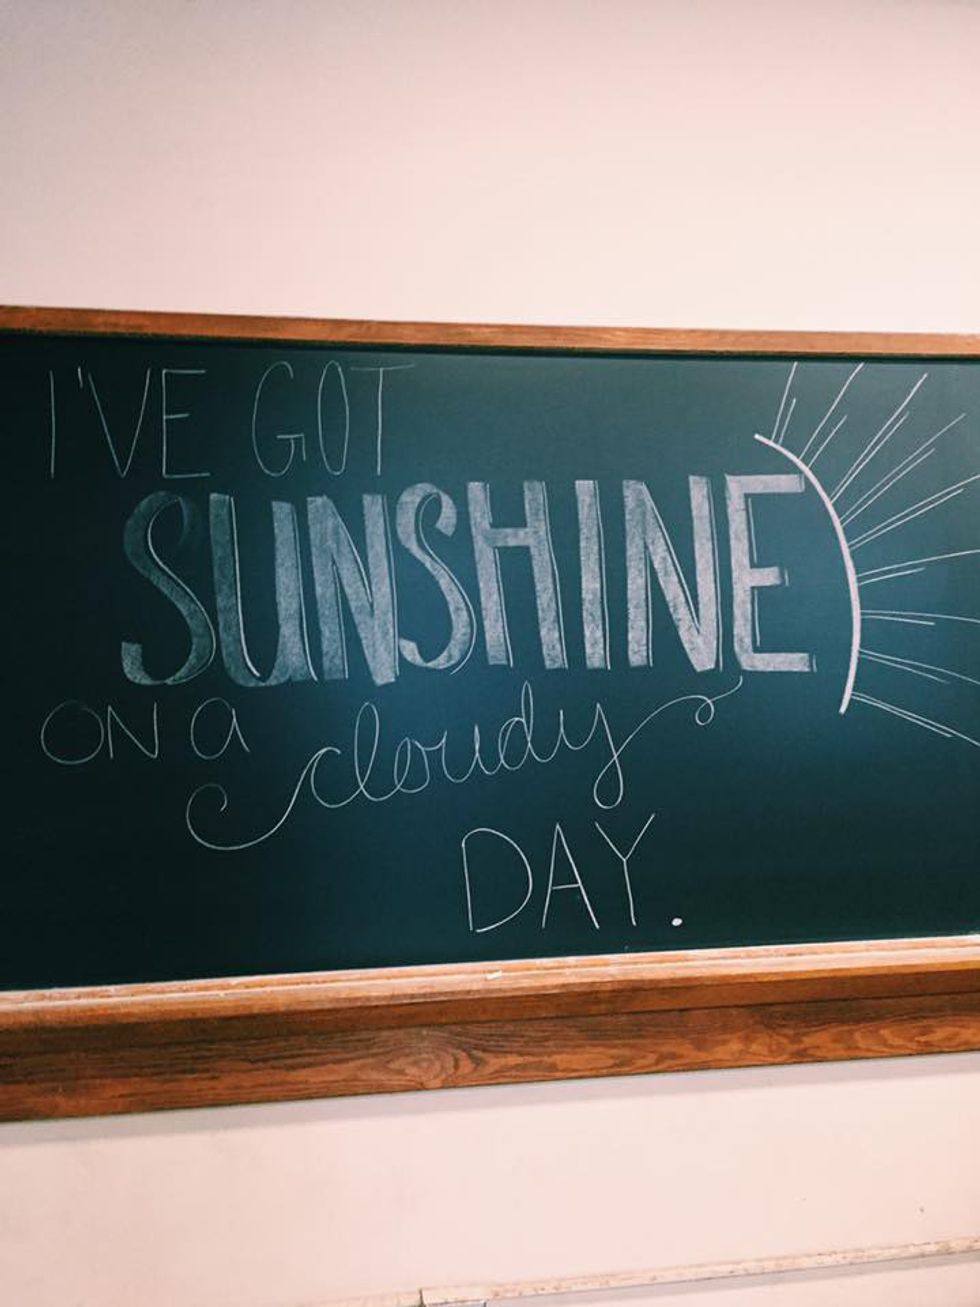 I'VE GOT
SUNSHINE
ON A cloudy
DAY.